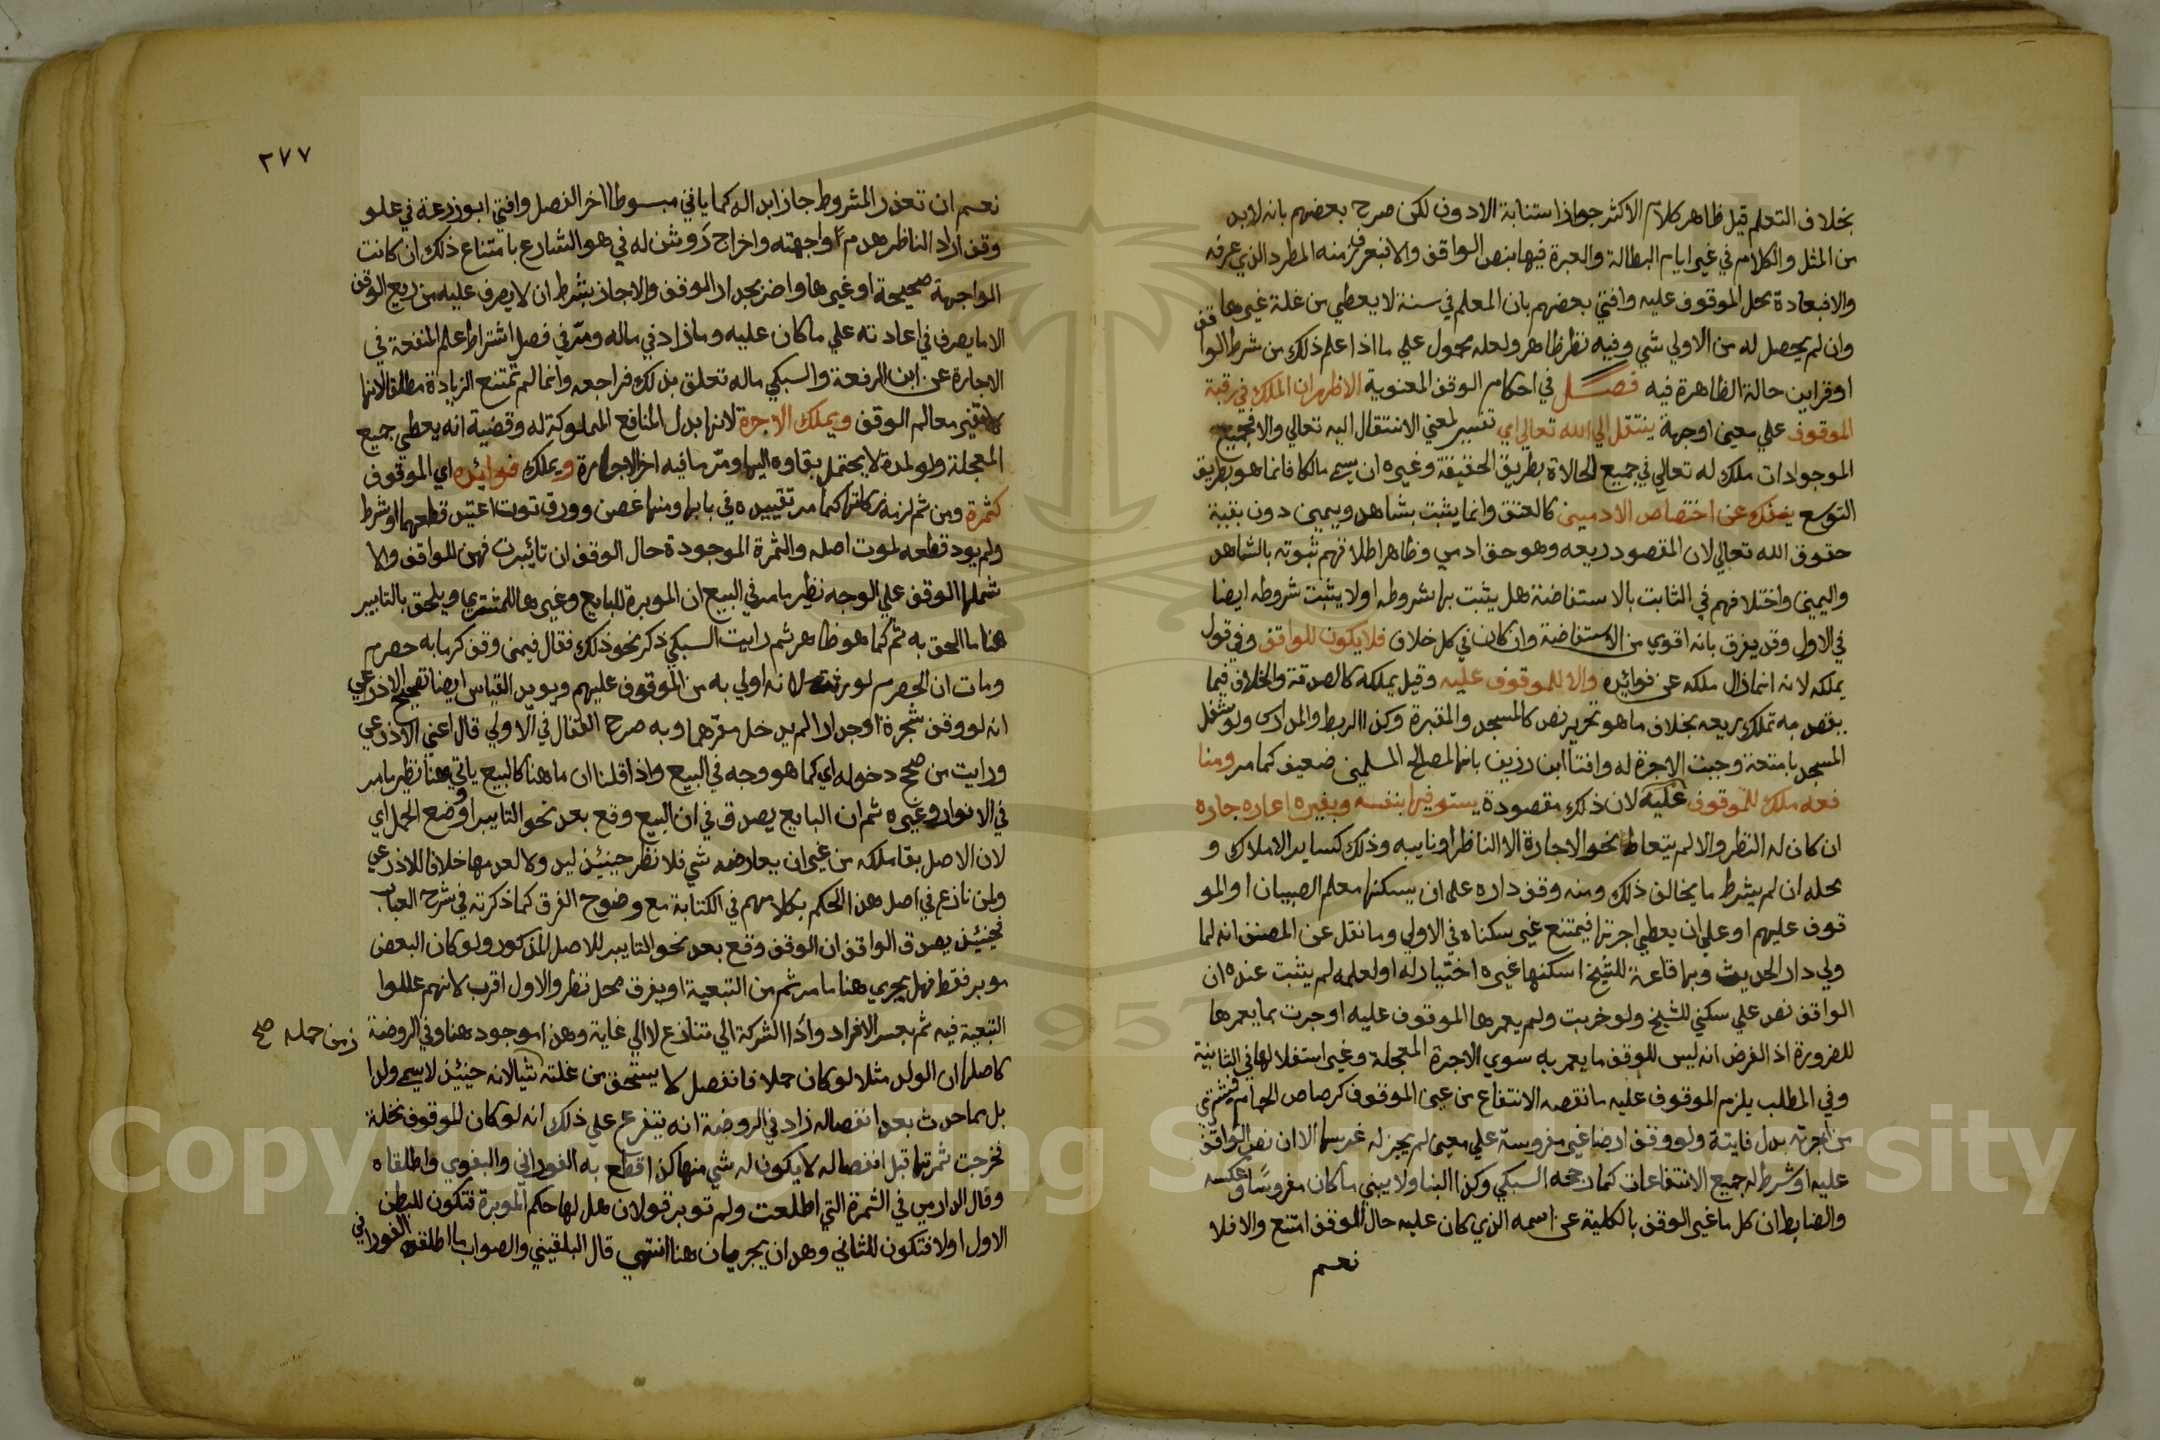 بخلاف التعلم قيل ظاهر كلام الاكثر جواز استنابة الادون لكن صرح بعضهم بانه لابد
من المثل والكلام في غير ايام البطالة والعبرة فيها بنص الواقف والا فبعرف زمنه المطرد الذي عرفه
والا فبعادة محل الموقوف عليه وافتي بعضهم بان المعلم في سنة لا يعطي من غلة غيرها
وان لم يحصل له من الاولي شي وفيه نظر ظاهر ولعله محمول علي ما اذا علم ذلك من شرط الواقف
او قراين حالة الظاهرة فيه فصل في احكام الوقف المعنوية الاظهر ان الملك في رقبة
الموقوف علي معين او جهة ينتقل الي الله تعالي اي تفسير لمعني الانتقال اليه تعالي والا فجميع
الموجودات ملك له تعالي في جميع الحالاة بطريق الحقيقة وغيره ان يسم مالكا فانما هو بطريق
التوسع ينفك عن اختصاص الادميين كالعتق وانما يثبت بشاهد ويمين دون بقية
حقوق الله تعالي لان المقصود ريعه وهو حق ادمي وظاهر اطلاقهم ثبوته بالشاهد
واليمين واختلافهم في الثابت بالاستفاضة هل يثبت بها شروطه او لا يثبت شروطه ايضا
في الاول وقد يفرق بانه اقوي من الاستفاضة وان كان في كل خلاف فلا يكون للواقف وفي قول
يملكه لانه انما زال ملكه عن فوائده والا للموقوف عليه وقيل يملكه كالصدقة والخلاف فيما
يقصد به تملك ريعه بخلاف ما هو تحرير نص كالمسجد والمقبرة وكذا الربط والمدارس ولو شغل
المسجد بامتعة وجبت الاجرة له وافتا ابن رزين بانها لمصالح المسلمين ضعيف كما مر ومنا
فعه ملك للموقوف عليه لان ذلك مقصودة يستوفيها بنفسه وبغيره اعاره جاره
ان كان له النظر والا لم يتعاط نحو الاجارة الا الناظر او نايبه وذلك كساير الاملاك و
محله ان لم يشرط ما يخالف ذلك ومنه وقف داره علي ان يسكنها معلم الصبيان او المو
قوف عليهم او علي ان يعطي اجرتها فيمتنع غير سكناه في الاولي وما نقل عن المصنف انه لما
ولي دار الحديث وبها قاعة للشيخ اسكنها غيره اختيار له او لعله لم يثبت عنده ان
الواقف نص علي سكني للشيخ ولو خربت ولم يعمرها الموقوف عليه اوجرت بما يعمرها
للضرورة اذ الغرض انه ليس للوقف ما يعمر به سوي الاجرة المعجلة وغير استغلالها في الثانية
وفي المطلب يلزم الموقوف عليه ما نقصه الانتفاع من عين الموقوف كرصاص الحمام فيشتري
من اجرته بدل فايتة ولو وقف ارضا غير مغروسة علي معين لم يجز له غرسها الا ان نص الواقف
عليه او شرط له جميع الانتفاعات كما رجحه السبكي وكذا البنا ولا يبني ما كان مغروسا وعكسه
والضابط ان كل ما غير الوقف بالكلية عن اسمه الذي كان عليه حال الوقف امتنع والا فلا
نعم
٢٧٧
نعم ان تعذر المشروط جاز ابداله كما ياتي مبسوطا اخر الفصل وافتي ابو زرعة في علو
وقف اراد الناظر هدم اواجهته واخراج روشن له في هو الشارع بامتناع ذلك ان كانت
المواجهة صحيحة او غيرها واضر بجدار الوقف والا جاز بشرط ان لا يصرف عليه من ريع الوقف
الا ما يصرف في اعادته علي ما كان عليه وما زاد في ماله ومر في فصل اشتراط علم المنفعة في
الاجارة عن ابن الرفعة والسبكي ماله تعلق بذلك فراجعه وانما لم تمتنع الزيادة مطلقا لانها
لا تغير معالم الوقف ويملك الاجرة لانها بدل المنافع المملوكة له وقضية انه يعطي جميع
المعجلة ولو لمدة لا يحتمل بقاوه اليها ومر ما فيه اخر الاجارة ويملك فوائده اي الموقوف
كثمرة ومن ثم لزمه زكاتها كما مر تقييده في بابها ومنها غصن وورق توت اعتيد قطعهما او شرط
ولم يود قطعه لموت اصله والثمرة الموجودة حال الوقف ان تابرت فهي للواقف والا
شملها الوقف علي الوجه نظير ما مر في البيع ان الموبرة للبايع وغيرها للمشتري ويلحق بالتابير
هنا ما الحق به ثم كما هو ظاهر ثم رايت السبكي ذكر نحو ذلك فقال فيمن وقف كرما به حصرم
ومات ان الحصرم لورثته لانه اولي به من الموقوف عليهم ويويد القياس ايضا تصحيح الاذرعي
انه لو وقف شجرة او جدارا لم يدخل مقرهما وبه صرح القفال في الاولي قال اعني الاذرعي
ورايت من صحح دخوله اي كما هو وجه في البيع واذا قلنا ان ما هنا كالبيع ياتي هنا نظير ما مر
في الانوار وغيره ثم ان البايع يصدق في ان البيع وقع بعد نحو التابير او وضع الحمل اي
لان الاصل بقا ملكه من غير ان يعارضه شي فلا نظر حينئذ ليد ولا لعدمها خلافا للاذرعي
ولمن نازع في اصل هذا الحكم بكلامهم في الكتابة مع وضوح الفرق كما ذكرته في شرح العباب
فحينئذ يصدق الواقف ان الوقف وقع بعد نحو التابير للاصل المذكور ولو كان البعض
موبر فقط فهل يجري هنا ما مر ثم من التبعية او يفرق محل نظر والاول اقرب لانهم عللوا
التبعية فيه ثم بعسر الافراد واذا الشركة الي تنازع لا الي غاية وهذا موجود هنا وفي الروضة
زمن حمله صح
كاصلها ان الولد مثلا لو كان حملا فانفصل لا يستحق من غلته شيا لانه حينئذ لا يسمي ولدا
بل بما حدث بعد انفصاله زاد في الروضة انه يتفرع علي ذلك انه لو كان الموقوف نخلة
فخرجت ثمرتها قبل انفصاله لا يكون له شي منها كذا قطع به الفوراني والبغوي واطلقاه
وقال الدارمي في الثمرة التي اطلعت ولم توبر قولان هل لها حكم الموبرة فتكون للبطن
الاول او لا فتكون للثاني وهذان يجريان هنا انتهي قال البلقيني والصواب ما اطلقه الفوراني